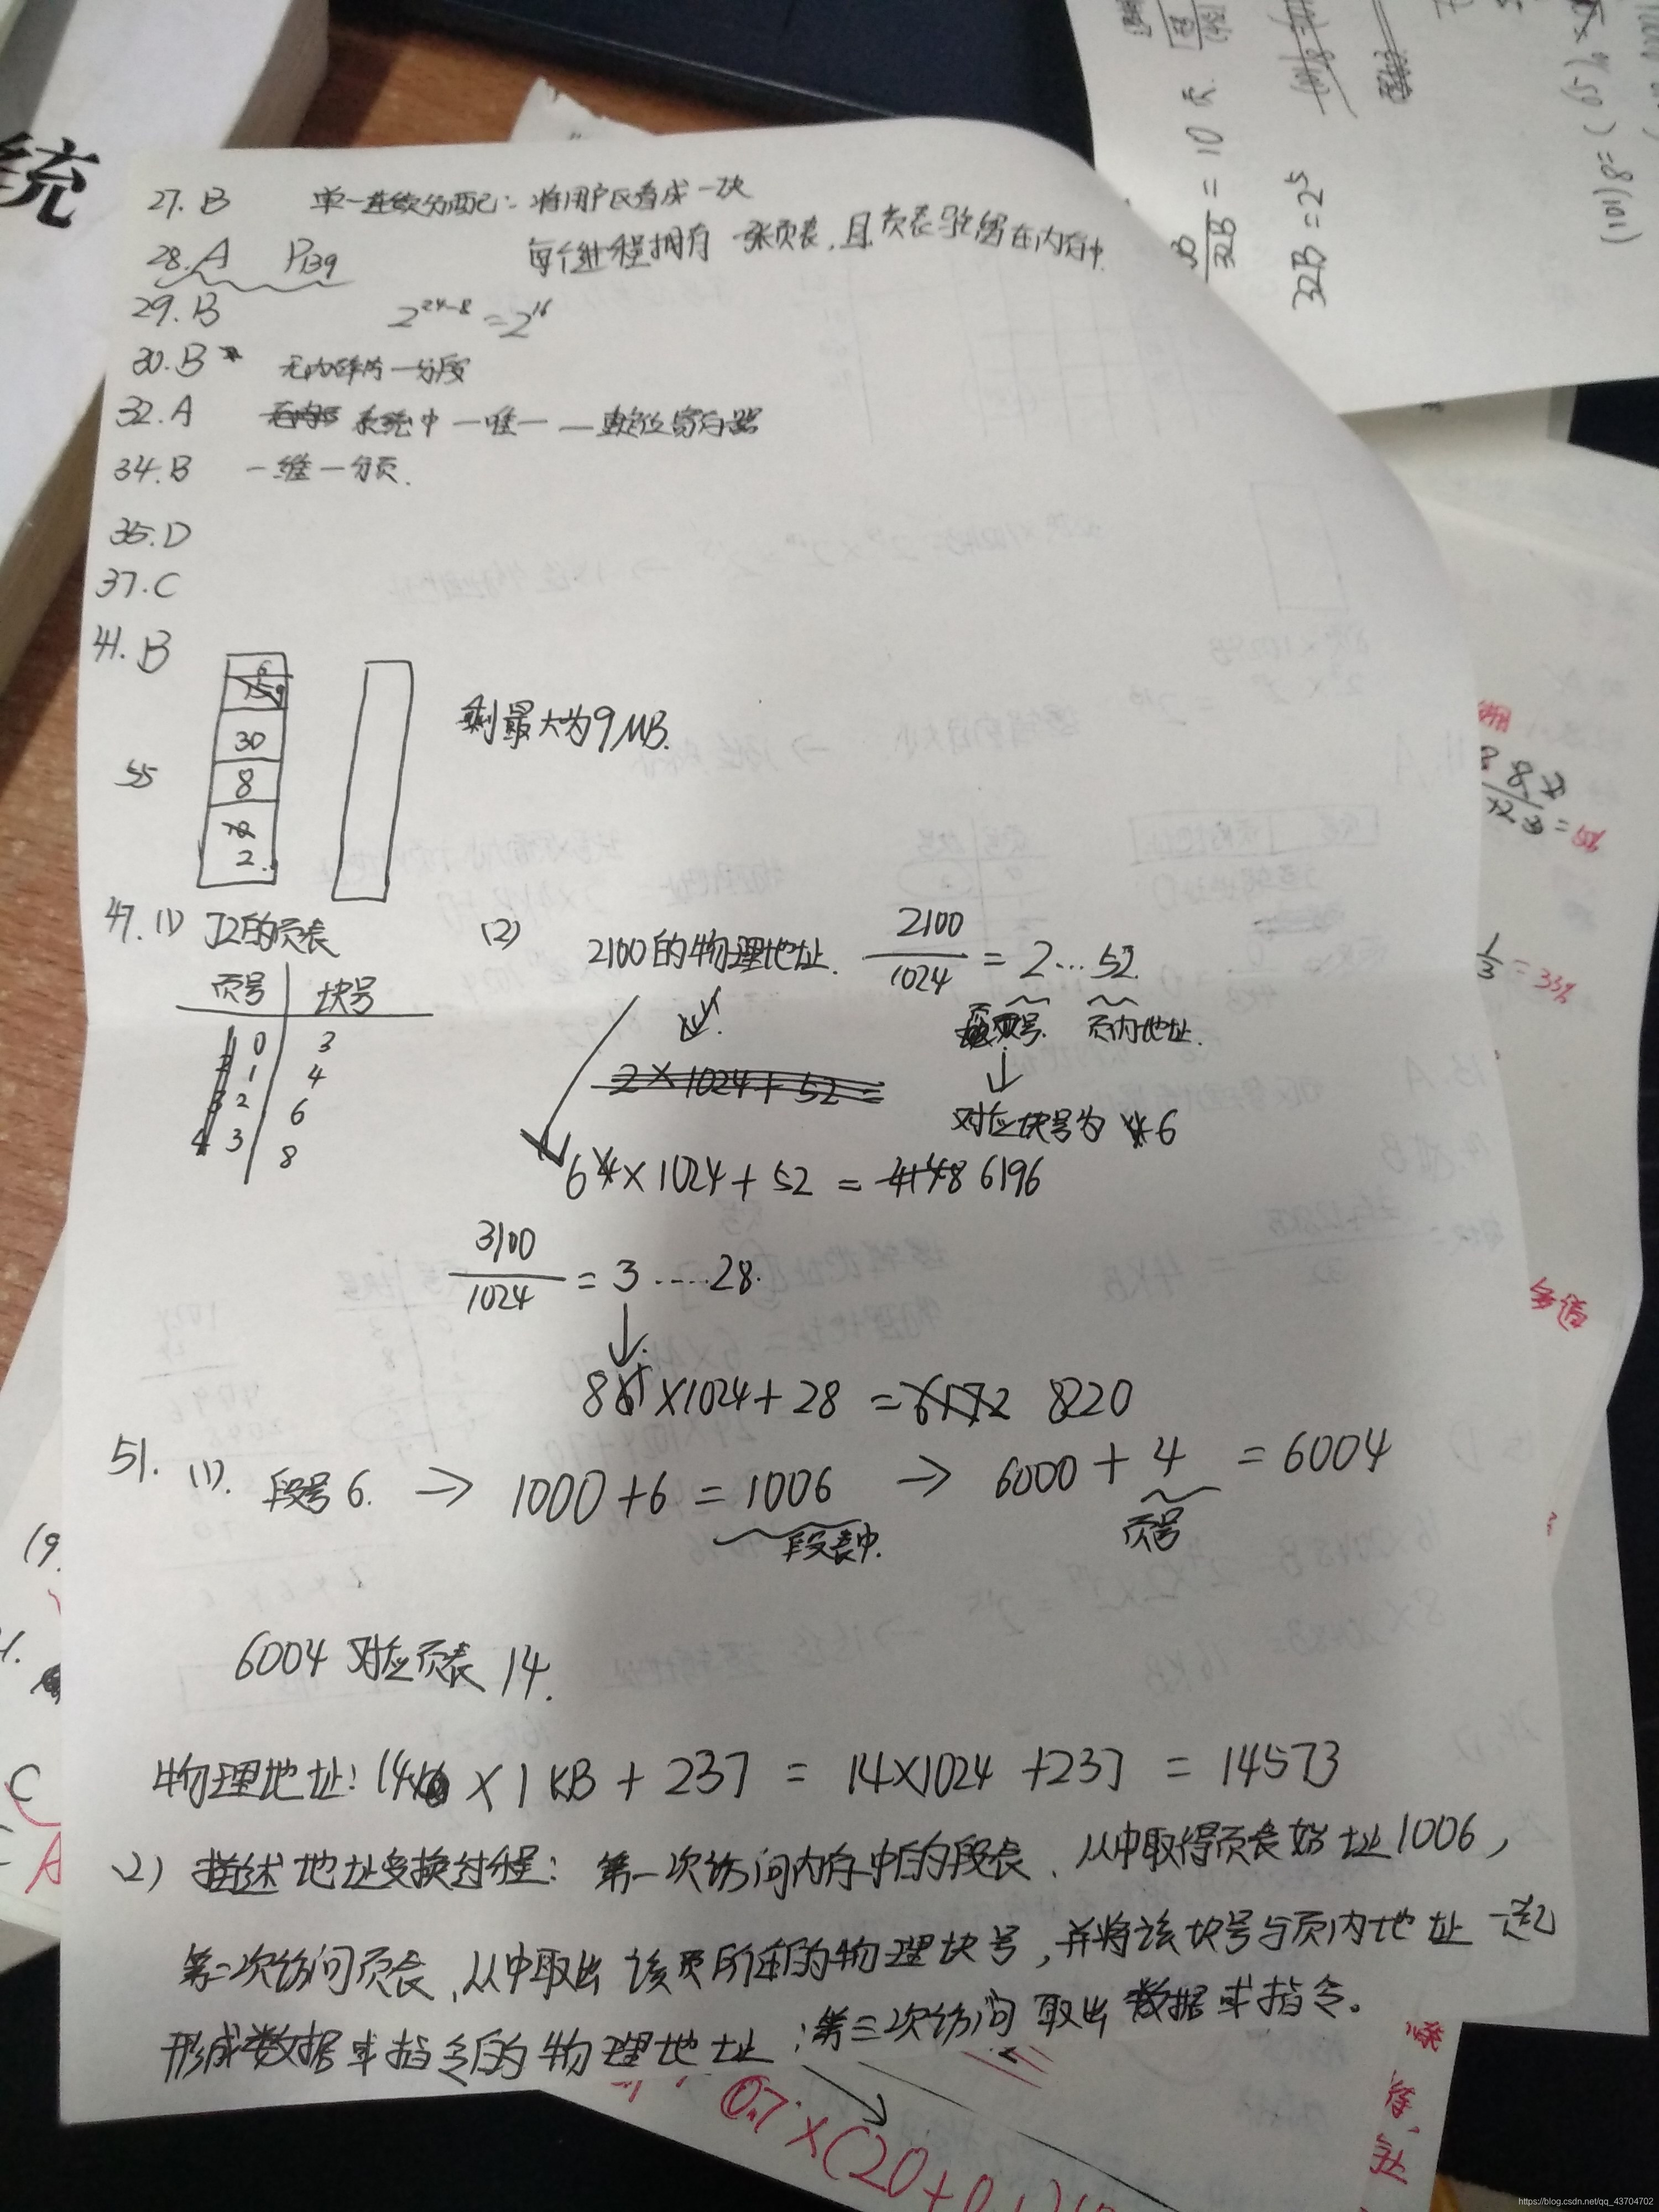 统
27. B 单一连续分配: 将用户区看成一块
28. A P139 每个进程拥有一张页表,且页表驻留在内存中.
29. B 2^{24-8} = 2^{16}
30. B 无内碎片—分段
32. A 系统中—唯一—重定位寄存器
34. B 一维—分页.
35. D
37. C
41. B
6
30
8
2
55
剩最大为9MB.
47. (1) J2的页表
页号 块号
0 3
1 4
2 6
3 8
(2) 2100的物理地址. 2100/1024 = 2...52
页号. 页内地址.
2×1024+52=
对应块号为 6
6×1024+52 = 6196
3100/1024 = 3.....28.
8×1024+28 = 8220
51. (1). 段号6. → 1000+6 = 1006 → 6000+4 = 6004
段表中. 页号
6004 对应页表 14.
物理地址: 14 × 1KB + 237 = 14×1024 +237 = 14573
(2) 描述地址变换过程: 第一次访问内存中的段表, 从中取得页表始址1006,
第二次访问页表,从中取出该页所在的物理块号,并将该块号与页内地址一起
形成数据或指令的物理地址;第三次访问取出数据或指令。
= 10 页
32B
32B = 2^5
(101)8 = (65)
1/3 = 33%
0.7×(20+0.
C
A
https://blog.csdn.net/qq_43704702